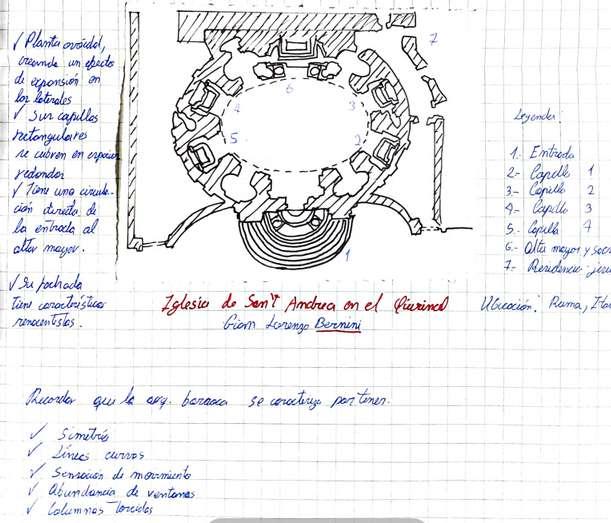 ✓ Planta ovoidal,
creando un efecto
de expansión en
los laterales
✓ Sus capillas
rectangulares
se cubren en espacios
redondos
✓ Tiene una circula-
ción directa de
la entrada al
altar mayor.
✓ Su fachada
tiene características
renacentistas.
7
6
4
3
5
2
1
Leyenda:
1.- Entrada
2.- Capilla 1
3.- Capilla 2
4.- Capilla 3
5.- Capilla 4
6.- Altar mayor y sac
7.- Residencia jesu
Iglesia de Sant Andrea en el Quirinal
Gian Lorenzo Bernini
Ubicación: Roma, Ita
Recordar que la arq. barroca se caracteriza por tener:
✓ Simetría
✓ Líneas curvas
✓ Sensación de movimiento
✓ Abundancia de ventanas
✓ Columnas torcidas